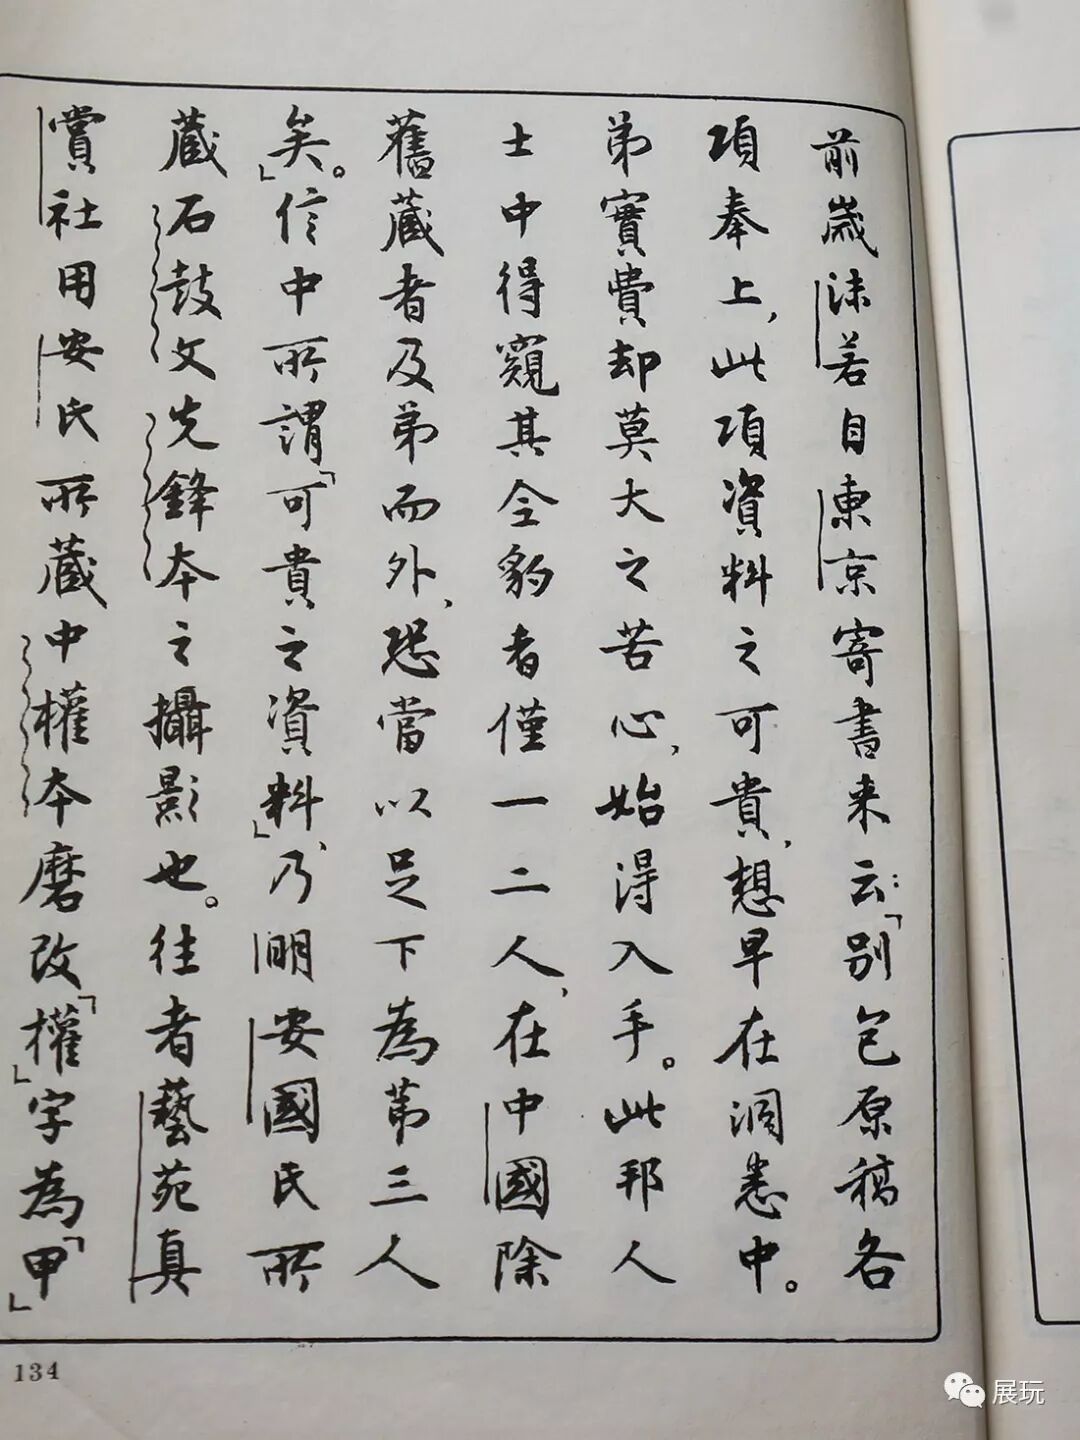 前歲沫若自東京寄書来云：「别包原稿各
項奉上，此項資料之可貴，想早在洞悉中。
弟實費却莫大之苦心，始得入手。此邦人
士中得窺其全豹者僅一二人，在中國除
舊藏者及弟而外，恐當以足下為第三人
矣。」信中所謂「可貴之資料」，乃明安國氏所
藏石鼓文先鋒本之攝影也。往者藝苑真
賞社用安氏所藏中權本磨改「權」字為「甲」
134
展玩